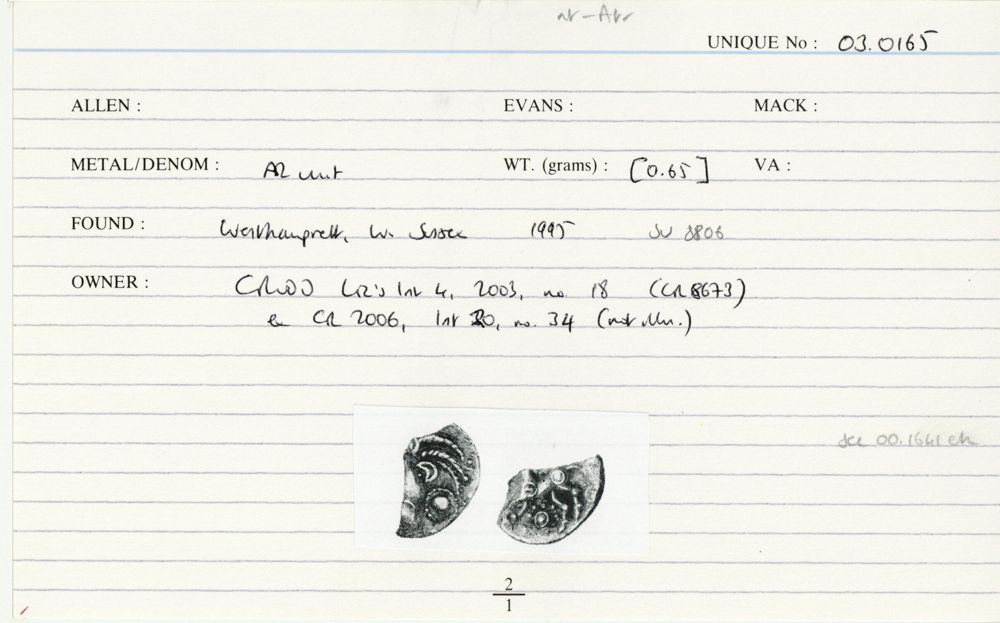 UNIQUE No : 03.0165
ALLEN : EVANS : MACK :
METAL/DENOM : AR unit WT. (grams) : [0.65] VA :
FOUND : Westhampnett, W. Sussex 1995 SU 8806
OWNER : List 4, 2003, no. 18 (CR 8673)
CR 2006, list 20, no. 34 (not illus.)
see 00.1641 etc
2
1